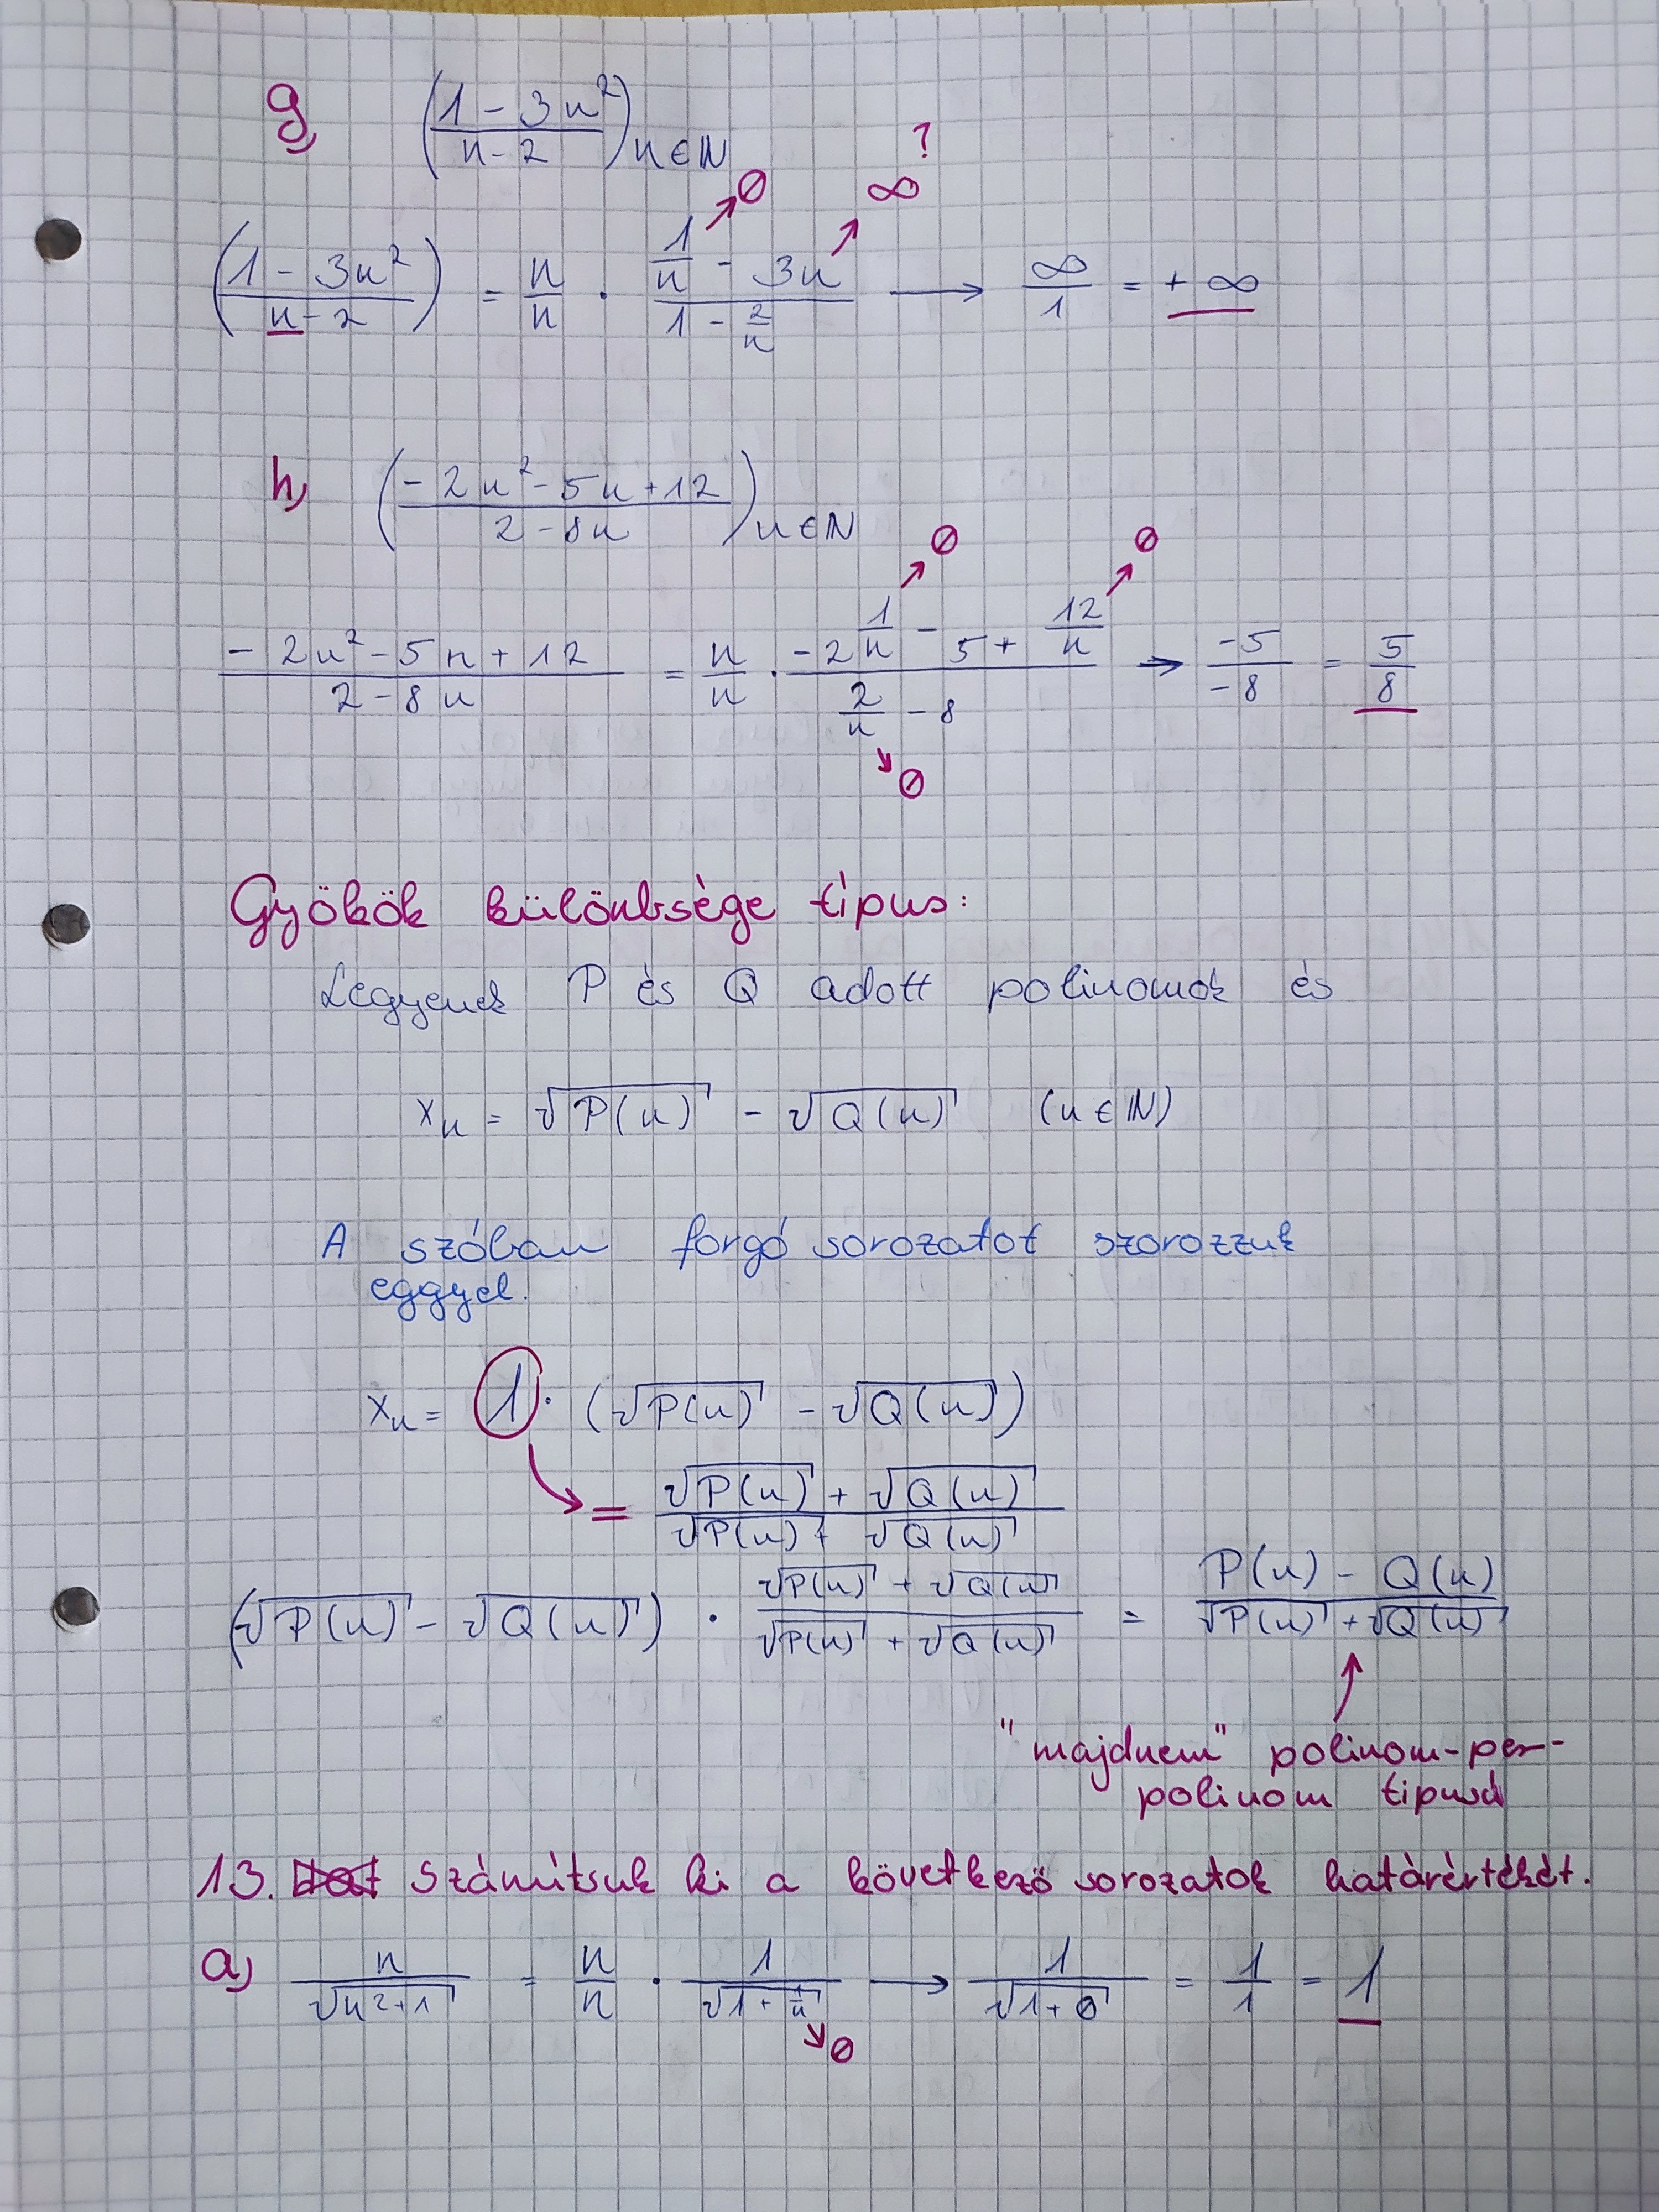 g) ((1 - 3n²)/(n - 2)) n∈ℕ
((1 - 3n²)/(n - 2)) = n/n · (1/n ↗0 - 3n ↗∞ ?)/(1 - 2/n) → ∞/1 = +∞
h) ((-2n² - 5n + 12)/(2 - 8n)) n∈ℕ
(-2n² - 5n + 12)/(2 - 8n) = n/n · (-2 1/n ↗0 - 5 + 12/n ↗0)/(2/n ↘0 - 8) → -5/-8 = 5/8
Gyökök különbsége típus:
Legyenek P és Q adott polinomok és
xₙ = √P(n) - √Q(n) (n∈ℕ)
A szóban forgó sorozatot szorozzuk
eggyel.
xₙ = 1 · (√P(n) - √Q(n))
= (√P(n) + √Q(n))/(√P(n) + √Q(n))
(√P(n) - √Q(n)) · (√P(n) + √Q(n))/(√P(n) + √Q(n)) = (P(n) - Q(n))/(√P(n) + √Q(n))
"majdnem" polinom-per-
polinom tipusú
13. Számítsuk ki a következő sorozatok határértékét.
a) n/√(n²+1) = n/n · 1/√(1 + 1/n ↘0) → 1/√(1+0) = 1/1 = 1